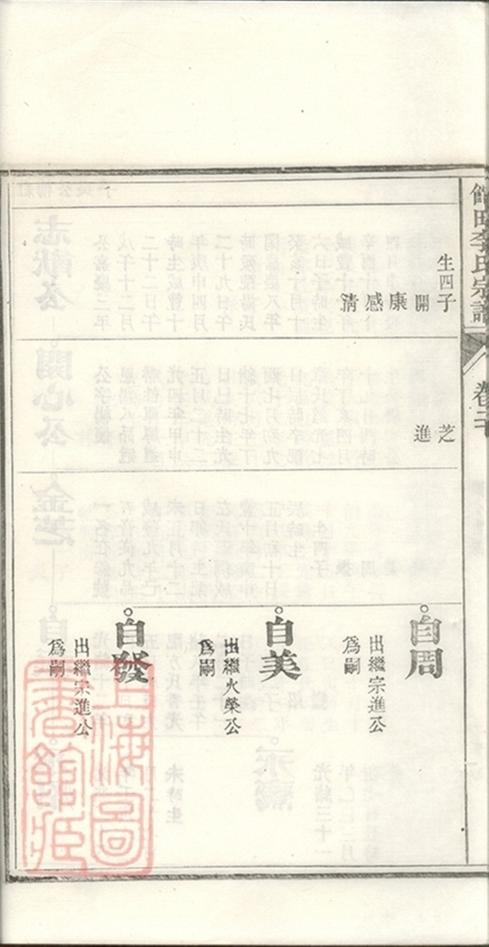 館田李氏宗譜
卷二十
生四子
開
康
感
清
芝
進
自周
出繼宗進公
爲嗣
自美
出繼火榮公
爲嗣
自發
出繼宗進公
爲嗣
上海圖
書館藏